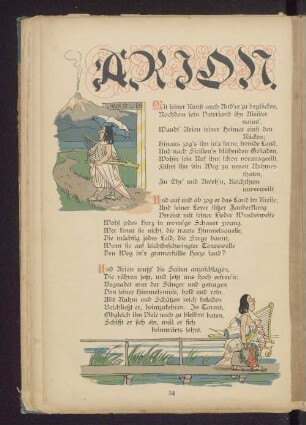 ARION.
Mit seiner Kunst auch And're zu beglücken,
Nachdem sein Vaterland ihn Meister
nannt',
Wandt' Arion seiner Heimat einst den
Rücken;
Hinaus zog's ihn in's ferne, fremde Land,
Und nach Sicilien's blühenden Gefaden,
Wohin sein Ruf ihm schon vorausgeeilt,
Führt ihn sein Weg zu neuen Ruhmes-
thaten,
Zu Ehr' und Anseh'n, Reichthum
unverweilt.
Und auf und ab zog er das Land im Kreise,
Und seiner Leyer süßer Zauberklang
Vereint mit seiner Lieder Wunderweise
Wohl jedes Herz in wonn'ge Schauer zwang.
Wer konnt' sie nicht, die traute Himmelsquelle,
Die mächtig jedes Leid, die Sorge bannt,
Wenn sie auf leichtbeschwingter Toneswelle
Den Weg in's gramerfüllte Herze fand?
Und Arion wußt' die Saiten anzuschlagen,
Die rühren jetzt, und jetzt uns hoch erfreu'n:
Begnadet war der Sänger und getragen
Von seiner Himmelsmuse, hold und rein.
Mit Ruhm und Schätzen reich beladen
Beschließt er, heimzukehren. In Tarent,
Obgleich ihn Viele noch zu bleiben baten,
Schifft er sich ein, weil er sich
heimwärts sehnt.
34